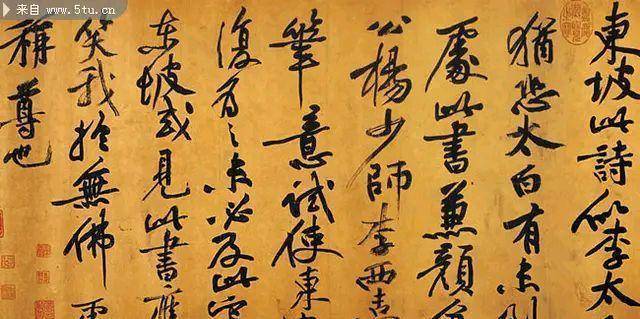 来自 www.5tu.cn
東坡此詩似李太
猶恐太白有未到
處此書兼顏
公楊少師李西
筆意試使東
復為之未必及此它
東坡或見此書應
笑我於無佛
稱尊也